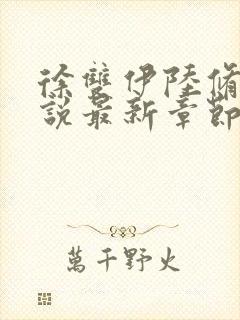 徐雙伊陸脩
說最新章節
萬千野火